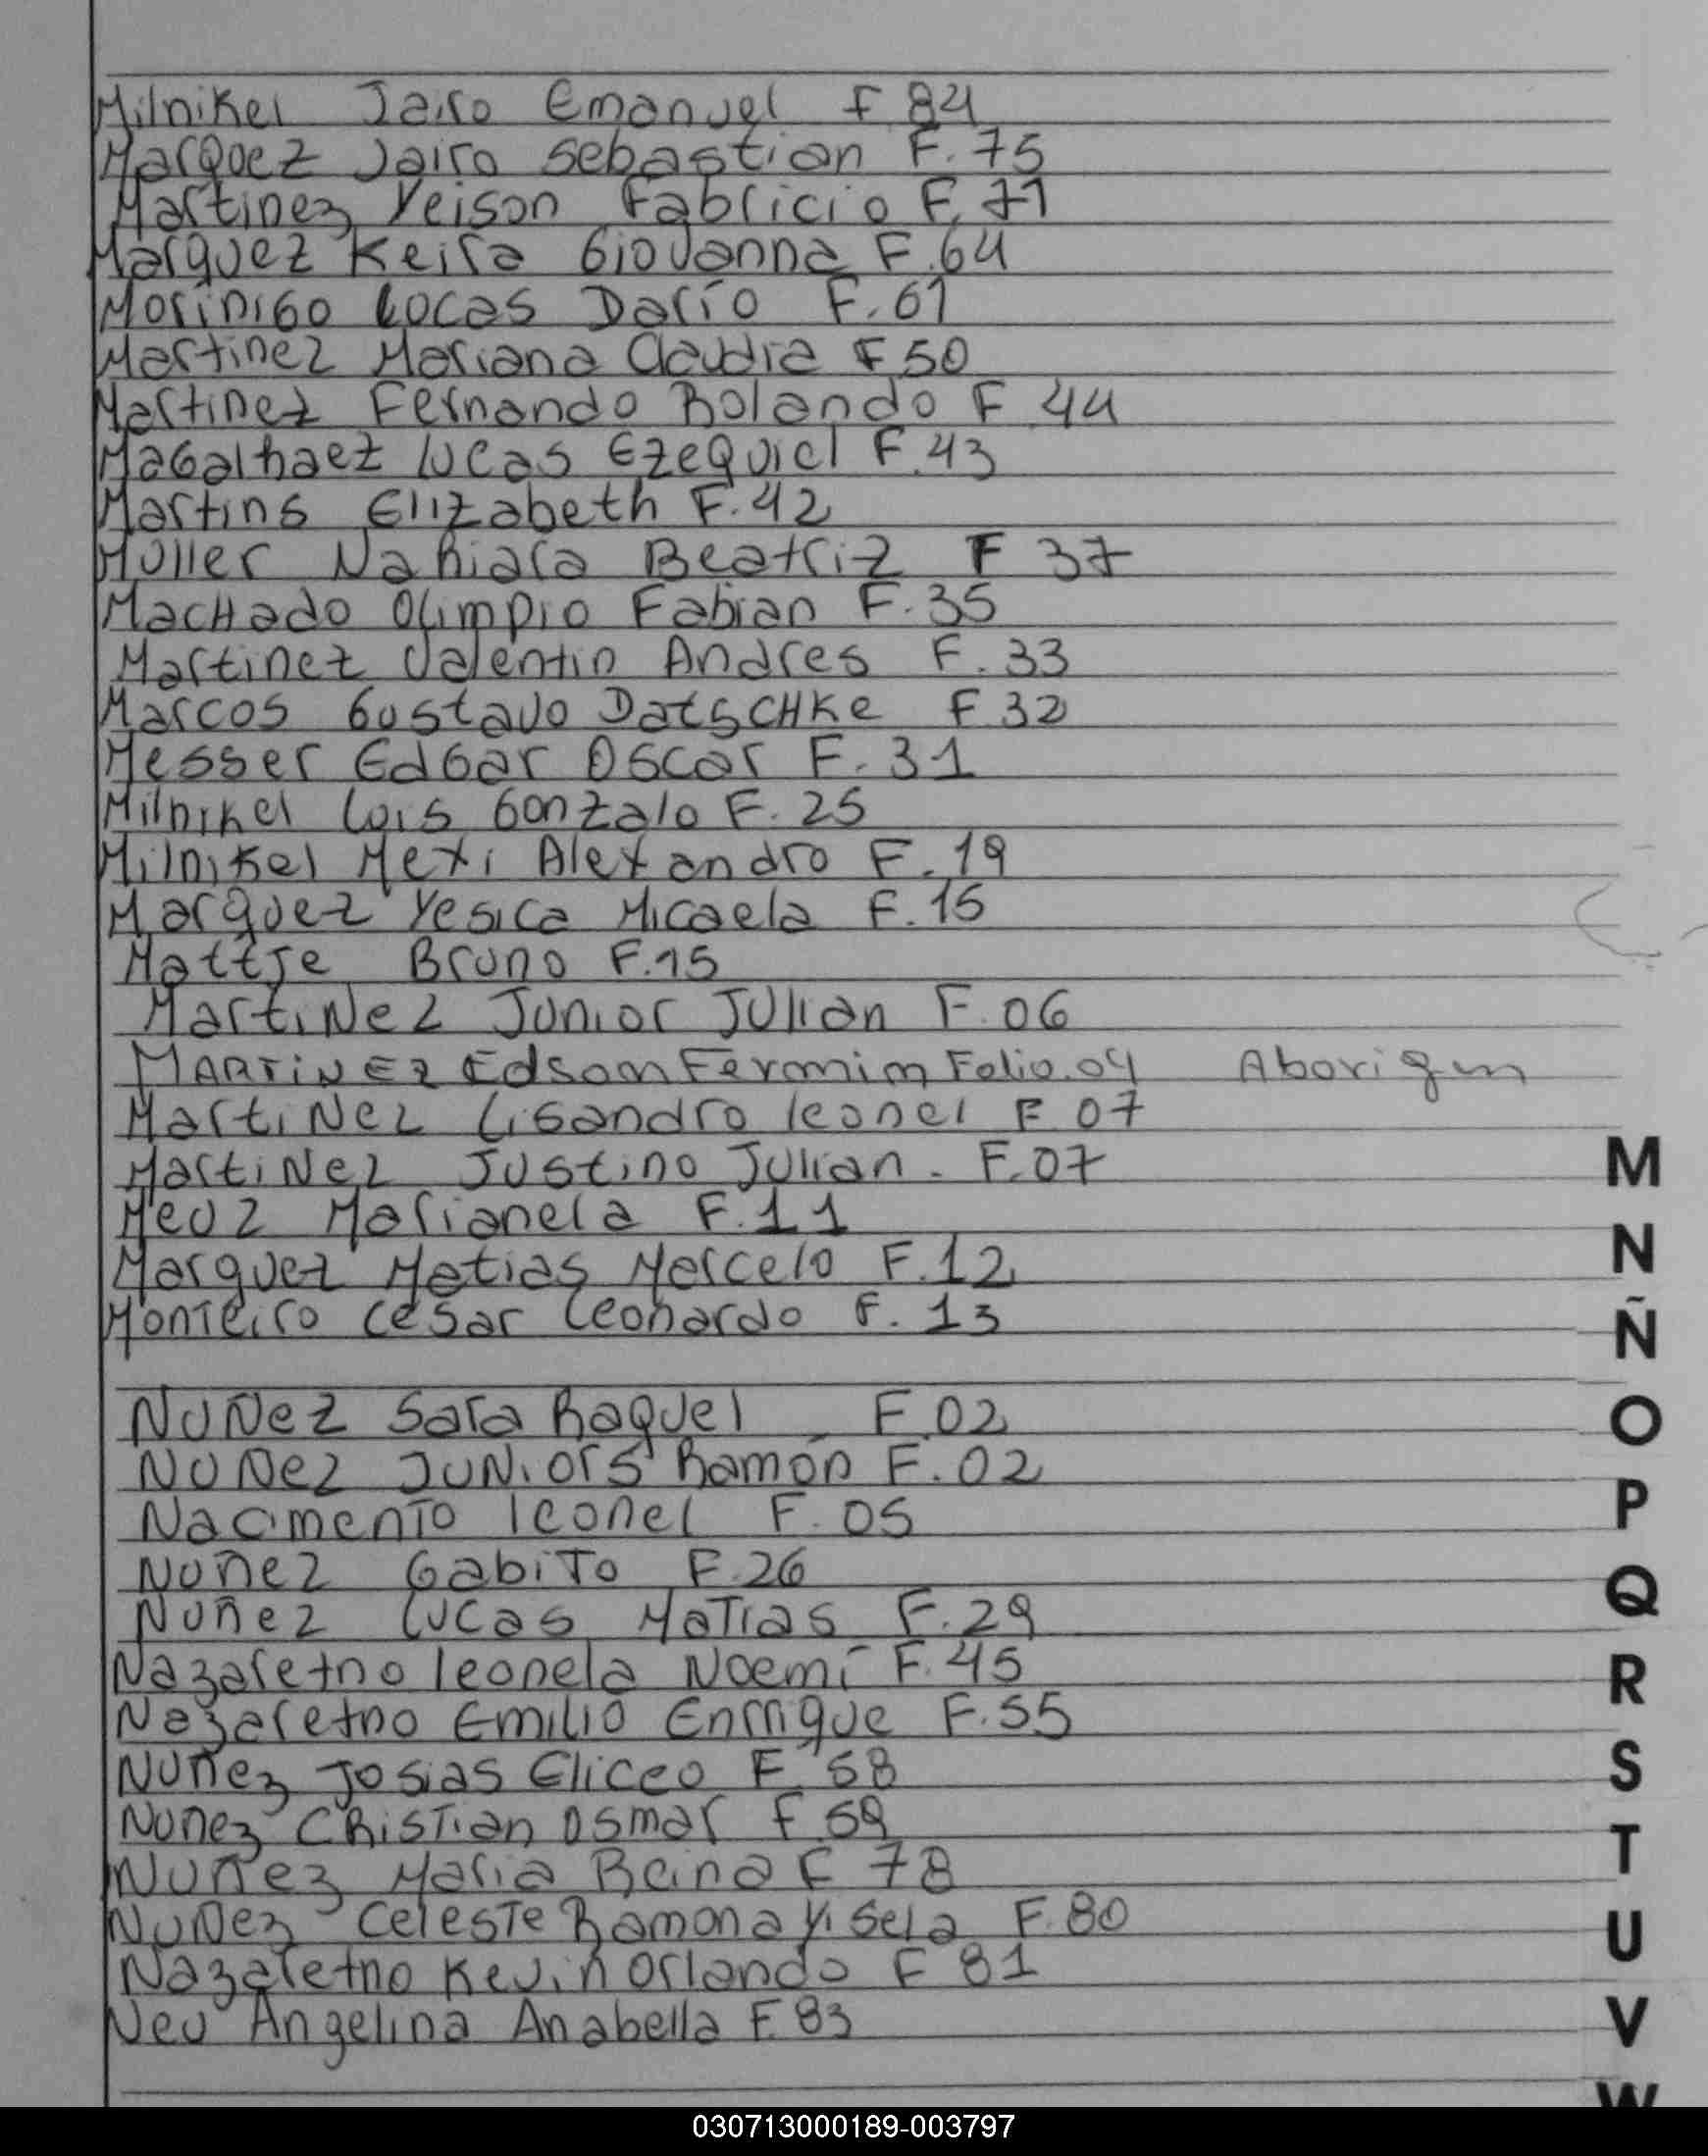 Milnikel Jairo Emanuel F 84
Marquez Jairo Sebastian F. 75
Martinez Yeison Fabricio F. 71
Marquez Keira Giovanna F. 64
Morinigo Lucas Darío F. 61
Martinez Mariana Claudia F 50
Martinez Fernando Rolando F 44
Magalhaez Lucas Ezequiel F. 43
Martins Elizabeth F. 42
Müller Nahiara Beatriz F 37
Machado Olimpio Fabian F. 35
Martinez Valentin Andres F. 33
Marcos Gustavo Datschke F 32
Messer Edgar Oscar F. 31
Milnikel Luis Gonzalo F. 25
Milnikel Mexi Alexandro F. 19
Marquez Yesica Micaela F. 15
Mattje Bruno F. 15
Martinez Junior Julian F. 06
Martinez Edsom Fermim Folio. 04 Aborigen
Martinez Lisandro leonel F 07
Martinez Justino Julian - F. 07
Meuz Marianela F. 11
Marquez Matias Marcelo F. 12
Monteiro Cesar Leonardo F. 13
Nuñez Sara Raquel F. 02
Nuñez Juniors Ramón F. 02
Nacimento leonel F. 05
Nuñez Gabito F. 26
Nuñez Lucas Matias F. 29
Nazaretno leonela Noemí F. 45
Nazaretno Emilio Enrrique F. 55
Nuñez Josias Eliceo F 58
Nunez Cristian Osmar F 59
Nuñez Maria Reina F 78
Nuñez Celeste Ramona Yisela F. 80
Nazaretno Kevin Orlando F 81
Neu Angelina Anabella F. 83
M
N
Ñ
O
P
Q
R
S
T
U
V
W
030713000189-003797